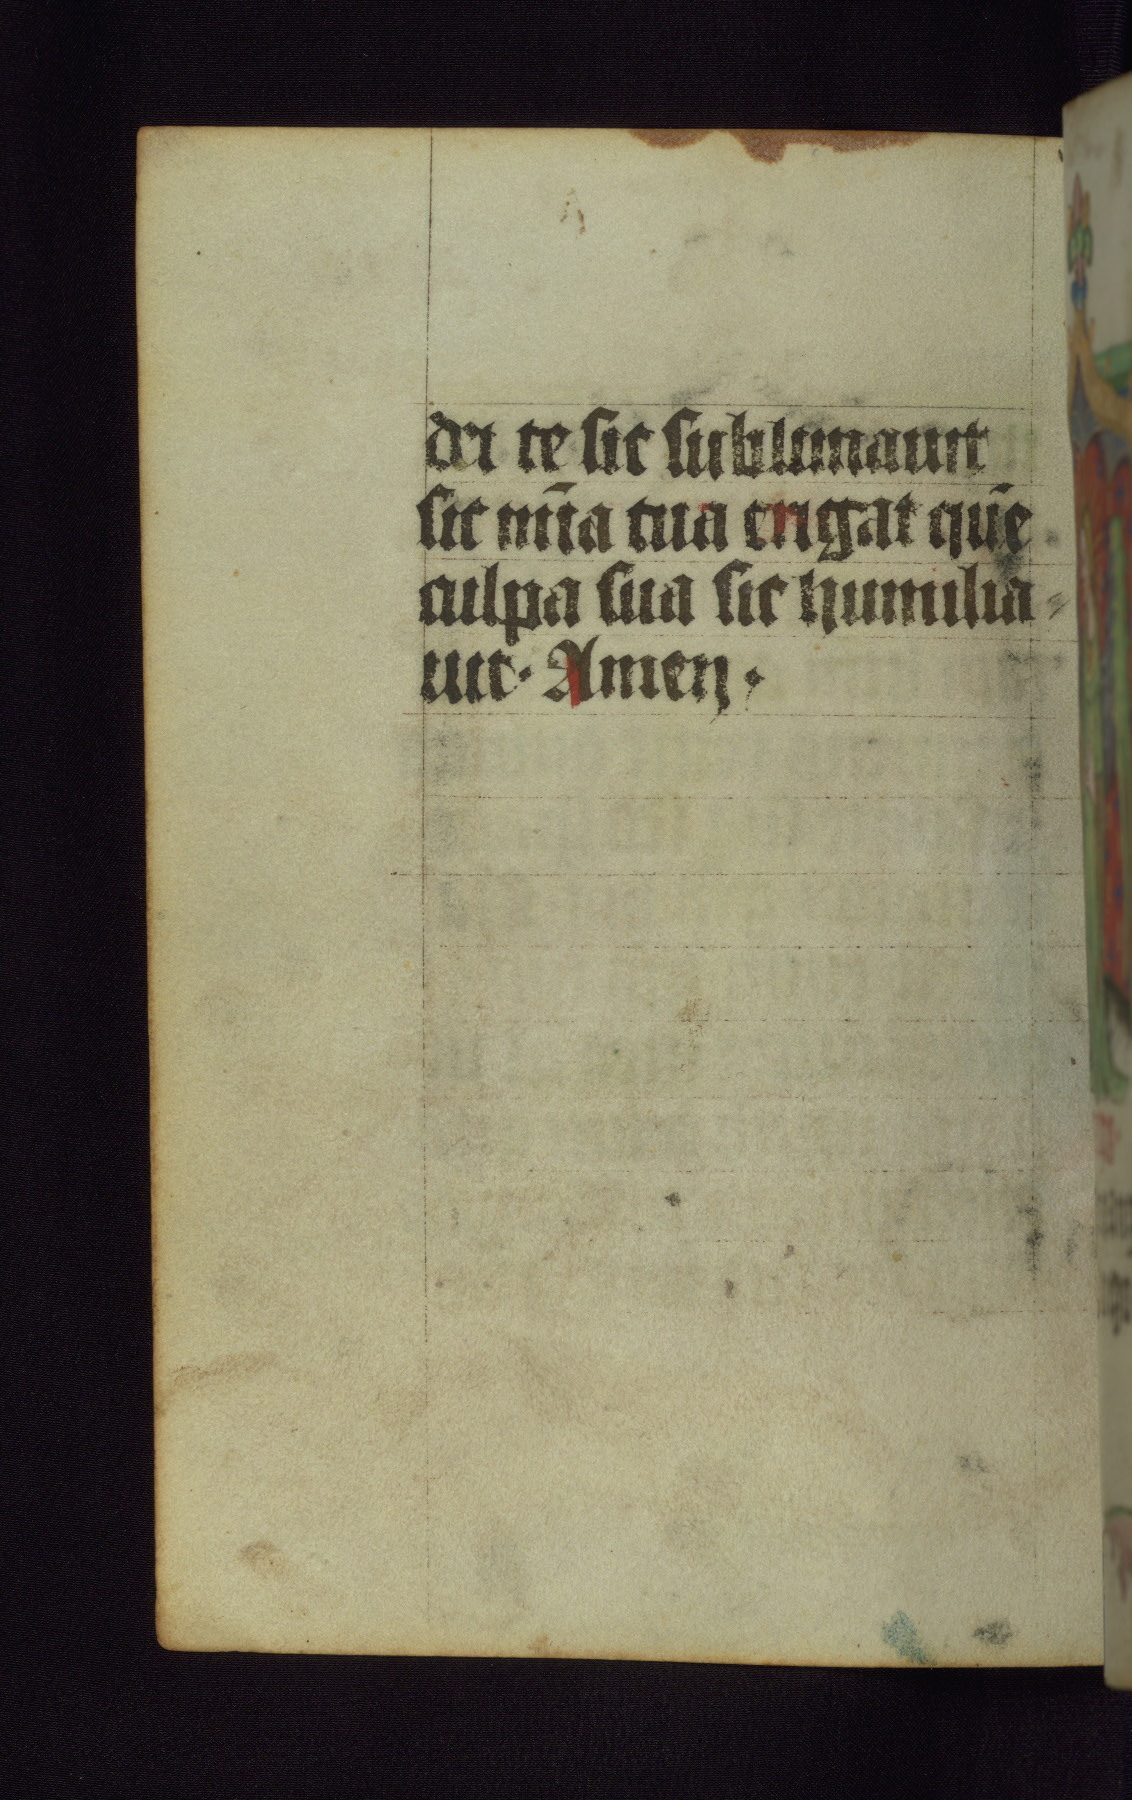 dei te sic sublimauit
sic mīa tua erigat quē
culpa sua sic humilia-
uit. Amen.